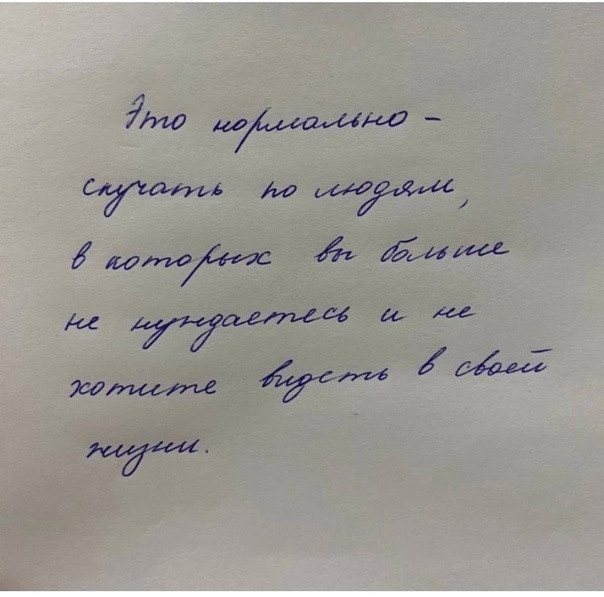 Это нормально –
скучать по людям,
в которых вы больше
не нуждаетесь и не
хотите видеть в своей
жизни.